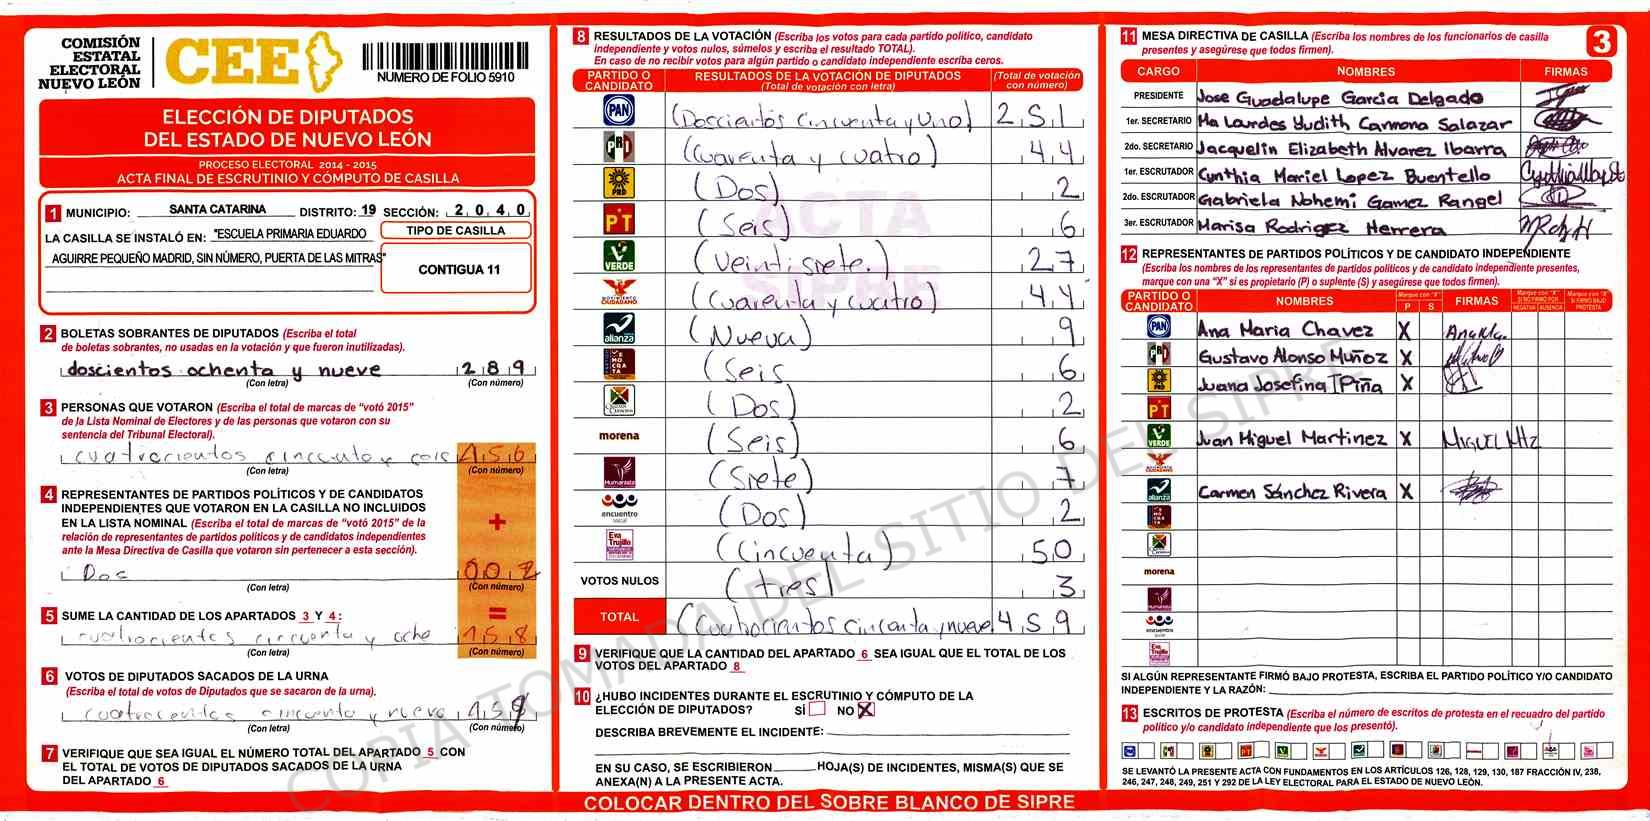 COMISIÓN
ESTATAL
ELECTORAL
NUEVO LEÓN
CEE
NUMERO DE FOLIO 5910
ELECCIÓN DE DIPUTADOS
DEL ESTADO DE NUEVO LEÓN
PROCESO ELECTORAL 2014 - 2015
ACTA FINAL DE ESCRUTINIO Y CÓMPUTO DE CASILLA
1 MUNICIPIO: SANTA CATARINA DISTRITO: 19 SECCIÓN: 2 0 4 0
LA CASILLA SE INSTALÓ EN: "ESCUELA PRIMARIA EDUARDO
AGUIRRE PEQUEÑO MADRID, SIN NÚMERO, PUERTA DE LAS MITRAS"
TIPO DE CASILLA
CONTIGUA 11
2 BOLETAS SOBRANTES DE DIPUTADOS (Escriba el total
de boletas sobrantes, no usadas en la votación y que fueron inutilizadas).
doscientos ochenta y nueve 2 8 9
(Con letra) (Con número)
3 PERSONAS QUE VOTARON (Escriba el total de marcas de "votó 2015"
de la Lista Nominal de Electores y de las personas que votaron con su
sentencia del Tribunal Electoral).
cuatrocientos cincuenta y seis 4 5 6
(Con letra) (Con número)
4 REPRESENTANTES DE PARTIDOS POLÍTICOS Y DE CANDIDATOS
INDEPENDIENTES QUE VOTARON EN LA CASILLA NO INCLUIDOS
EN LA LISTA NOMINAL (Escriba el total de marcas de "votó 2015" de la
relación de representantes de partidos políticos y candidatos independientes
ante la Mesa Directiva de Casilla que votaron sin pertenecer a esta sección).
+
Dos 0 0 2
(Con letra) (Con número)
5 SUME LA CANTIDAD DE LOS APARTADOS 3 Y 4: =
cuatrocientos cincuenta y ocho 4 5 8
(Con letra) (Con número)
6 VOTOS DE DIPUTADOS SACADOS DE LA URNA
(Escriba el total de votos de Diputados que se sacaron de la urna).
cuatrocientos cincuenta y nueve 4 5 9
(Con letra) (Con número)
7 VERIFIQUE QUE SEA IGUAL EL NÚMERO TOTAL DEL APARTADO 5 CON
EL TOTAL DE VOTOS DE DIPUTADOS SACADOS DE LA URNA
DEL APARTADO 6
8 RESULTADOS DE LA VOTACIÓN (Escriba los votos para cada partido político, candidato
independiente y votos nulos, súmelos y escriba el resultado TOTAL).
En caso de no recibir votos para algún partido o candidato independiente escriba ceros.
PARTIDO O CANDIDATO RESULTADOS DE LA VOTACIÓN DE DIPUTADOS (Total de votación con letra) (Total de votación con número)
PAN (Doscientos cincuenta y Uno) 2 5 1
PRI (Cuarenta y cuatro) 4 4
PRD (Dos) 2
PT (Seis) 6
VERDE (Veintisiete.) 27
MOVIMIENTO CIUDADANO (Cuarenta y cuatro) 4 4
alianza (Nueva) 9
DEMOCRATA (Seis 6
CRUZADA CIUDADANA (Dos) 2
morena (Seis) 6
Humanista (Siete) 7
encuentro social (Dos) 2
Eva Trujillo (Cincuenta) 50
VOTOS NULOS (tres) 3
TOTAL (Cuatrocientos cincuenta y nueve 4 5 9
ACTA
SIPRE
9 VERIFIQUE QUE LA CANTIDAD DEL APARTADO 6 SEA IGUAL QUE EL TOTAL DE LOS
VOTOS DEL APARTADO 8
10 ¿HUBO INCIDENTES DURANTE EL ESCRUTINIO Y CÓMPUTO DE LA
ELECCIÓN DE DIPUTADOS? SÍ NO X
DESCRIBA BREVEMENTE EL INCIDENTE:
EN SU CASO, SE ESCRIBIERON HOJA(S) DE INCIDENTES, MISMA(S) QUE SE
ANEXA(N) A LA PRESENTE ACTA.
COLOCAR DENTRO DEL SOBRE BLANCO DE SIPRE
11 MESA DIRECTIVA DE CASILLA (Escriba los nombres de los funcionarios de casilla
presentes y asegúrese que todos firmen).
3
CARGO NOMBRES FIRMAS
PRESIDENTE Jose Guadalupe Garcia Delgado
1er. SECRETARIO Ma Lourdes Yudith Carmona Salazar
2do. SECRETARIO Jacquelin Elizabeth Alvarez Ibarra
1er. ESCRUTADOR Cynthia Mariel Lopez Buentello
2do. ESCRUTADOR Gabriela Nohemi Gamez Rangel
3er. ESCRUTADOR Marisa Rodrigez Herrera
12 REPRESENTANTES DE PARTIDOS POLÍTICOS Y DE CANDIDATO INDEPENDIENTE
(Escriba los nombres de los representantes de partidos políticos y de candidato independiente presentes,
marque con una "X" si es propietario (P) o suplente (S) y asegúrese que todos firmen).
PARTIDO O CANDIDATO NOMBRES Marque con "X" P S FIRMAS Marque con "X" SI NO FIRMÓ POR NEGATIVA AUSENCIA Marque con "X" SI FIRMÓ BAJO PROTESTA
PAN Ana Maria Chavez X
PRI Gustavo Alonso Muñoz X
PRD Juana Josefina Piña X
PT
VERDE Juan Miguel Martinez X MIGUEL MTZ
MOVIMIENTO CIUDADANO
alianza Carmen Sánchez Rivera X
morena
Humanista
encuentro social
Eva Trujillo
SI ALGÚN REPRESENTANTE FIRMÓ BAJO PROTESTA, ESCRIBA EL PARTIDO POLÍTICO Y/O CANDIDATO
INDEPENDIENTE Y LA RAZÓN:
13 ESCRITOS DE PROTESTA (Escriba el número de escritos de protesta en el recuadro del partido
político y/o candidato independiente que los presentó).
SE LEVANTÓ LA PRESENTE ACTA CON FUNDAMENTOS EN LOS ARTÍCULOS 126, 128, 129, 130, 187 FRACCIÓN IV, 238,
246, 247, 248, 249, 251 Y 292 DE LA LEY ELECTORAL PARA EL ESTADO DE NUEVO LEÓN.
COPIA TOMADA DEL SITIO DEL SIPRE